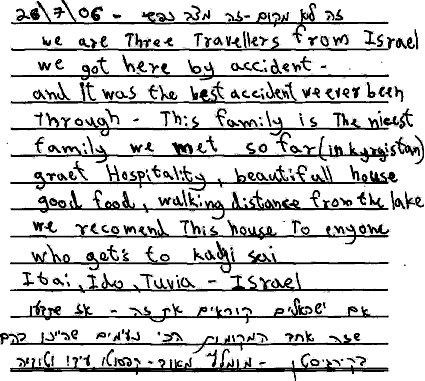 28/7/06 - זה לא מקום - זה מצב נפשי
we are Three Travellers from Israel
we got here by accident -
and It was the best accident we ever been
Through - This family is The nicest
family we met so far (in kyrgistan)
graet Hospitality, beautifull house
good food, walking distance from the lake
we recomend This house To enyone
who gets to kadji sai
Itai, Ido, Tuvia - ISrael
אם ישראלים קוראים את זה - אז תדעו
שזה אחד המקומות הכי נעימים שהיינו בהם
בקירגיסטן - מומלץ מאוד - עידו וטוביה